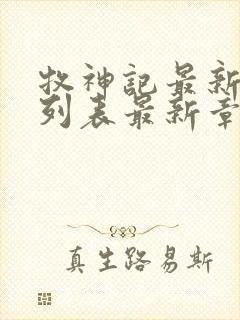 牧神記最新
列表最新章
真生路易斯